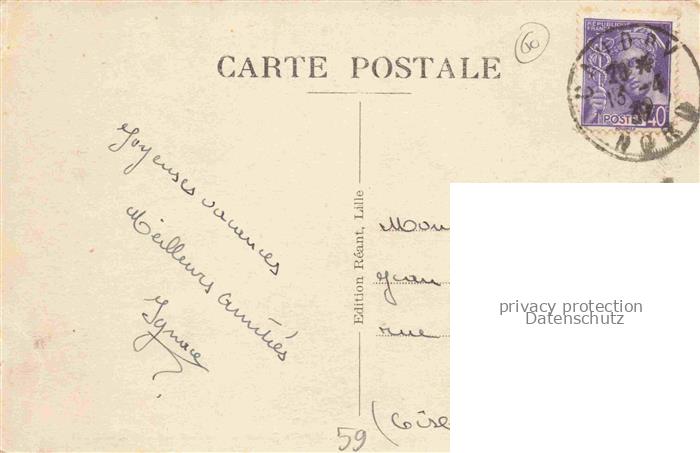 60
CARTE POSTALE
RÉPUBLIQUE FRANÇAISE
POSTES 40
20 *
13 -4
39
NORD
Joyeuses vacances
Meilleurs amitiés
Ignace
Edition Réant, Lille
Mon
Jean
rue
(Oise
59
privacy protection
Datenschutz